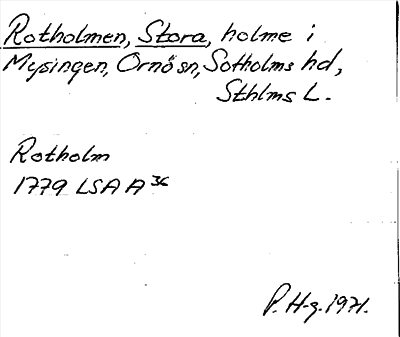 Rotholmen, Stora, holme i
Mysingen, Ornö sn, Sotholms hd,
Sthlms L.
Rotholm
1779 LSA A 36
P. H-g. 1971.